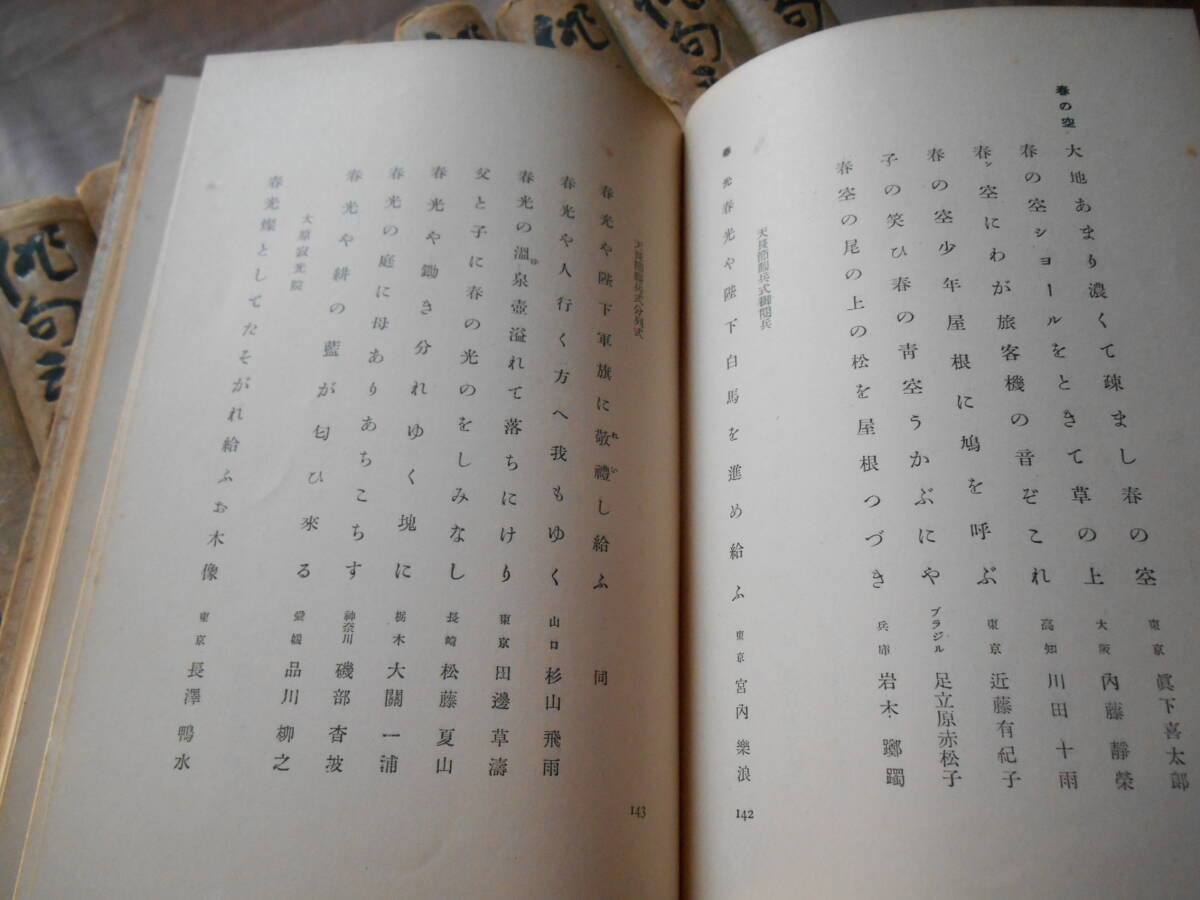 春の空
大地あまり濃くて疎まし春の空 東京 眞下喜太郎
春の空ショールをときて草の上 大阪 內藤靜榮
春ン空にわが旅客機の音ぞこれ 高知 川田十雨
春の空少年屋根に鳩を呼ぶ 東京 近藤有紀子
子の笑ひ春の靑空うかぶにや ブラジル 足立原赤松子
春空の尾の上の松を屋根つづき 兵庫 岩木躑躅
天長節觀兵式御閱兵
春光 春光や陛下白馬を進め給ふ 東京 宮內樂浪
142
天長節觀兵式分列式
春光や陛下軍旗に敬禮し給ふ 同
れい
春光や人行く方へ我もゆく 山口 杉山飛雨
春光の溫泉壺溢れて落ちにけり 東京 田邊草濤
ゆ
父と子に春の光のをしみなし 長崎 松藤夏山
春光や鋤き分れゆく塊に 栃木 大關一浦
春光の庭に母ありあちこちす 神奈川 磯部杳波
春光や耕の藍が匂ひ來る 愛媛 品川柳之
大原寂光院
春光燦としてたそがれ給ふお木像 東京 長澤鴨水
143
俳
俳句
俳句